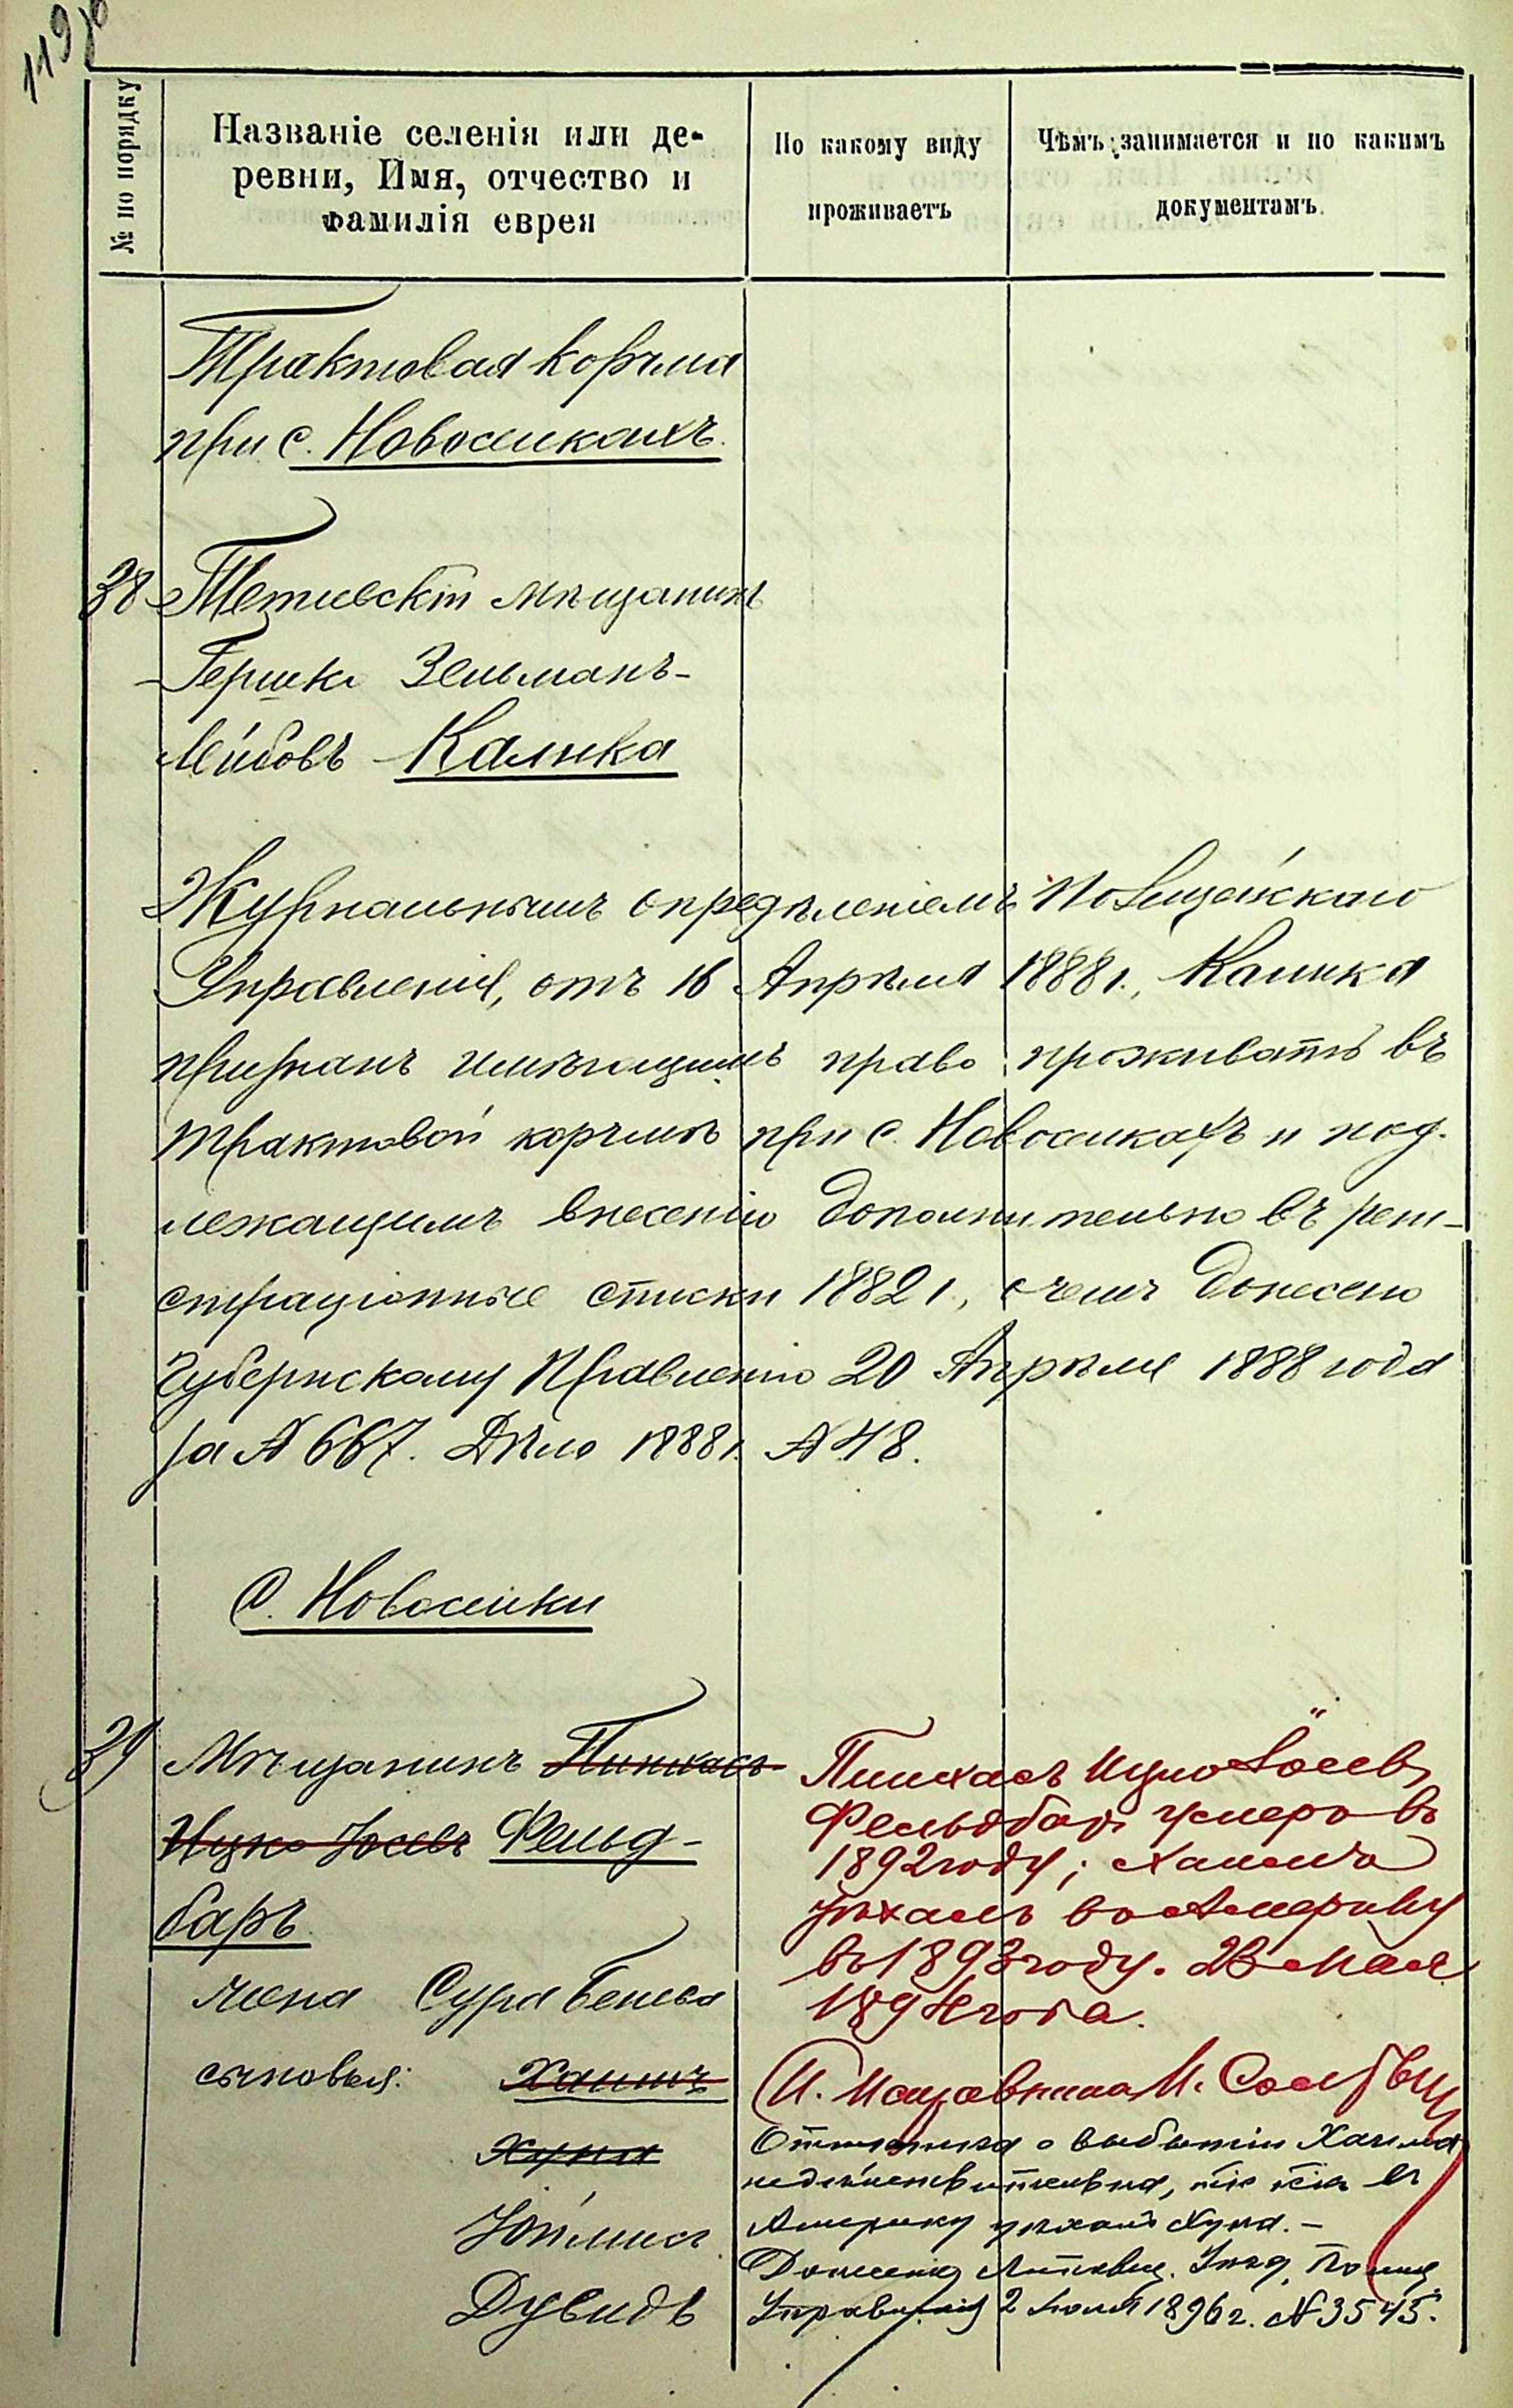 119об
№ по порядку
Названіе селенія или де-
ревни, Имя, отчество и
фамилія еврея
По какому виду
проживаетъ
Чѣмъ занимается и по какимъ
документамъ.
Трактовая корчма
при с. Новоселкахъ.
38 Тетіевскій мѣщанинъ
Гершко Зельманъ-
Лейбовъ Калика
Журнальнымъ опредѣленіемъ Полицейскаго
Управленія, отъ 16 Апрѣля 1888 г., Калика
признанъ имѣющимъ право проживать въ
трактовой корчмѣ при с. Новоселкахъ и под-
лежащимъ внесенію дополнительно въ реги-
страціонные списки 1882 г., о чемъ донесено
Губернскому Правленію 20 Апрѣля 1888 года
за № 667. Дѣло 1888 г. № 48.
С. Новоселки
39 Мѣщанинъ Пинхасъ
Ицко-Іосевъ Фельд-
баръ
жена Сура Бейла
сыновья: Хаимъ
Хуна
Іойлыкъ
Дувидъ
Пинхасъ Ицко Іосевъ
Фельдбаръ умеръ въ
1892 году; Хаимъ
уѣхалъ въ Америку
въ 1893 году. 23 Мая
1894 года.
И. Исправника М.
Отмѣтка о выбытіи Хаима
недѣйствительна, такъ какъ въ
Америку уѣхалъ Хуна. –
Донесеніе Управленія 2 Іюля 1896 г. № 3545.